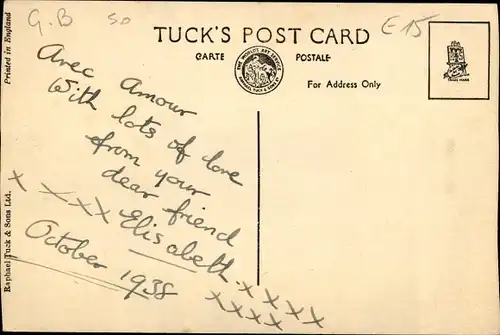 G.B 50
E15
TUCK'S POST CARD
CARTE POSTALE
For Address Only
Printed in England
Raphael Tuck & Sons Ltd.
THE WORLD'S ART SERVICE
RAPHAEL TUCK & SONS LTD
TRADE MARK
Avec Amour
With lots of love
from your
dear friend
x x x x Elisabeth x x x x
October 1938 x x x x